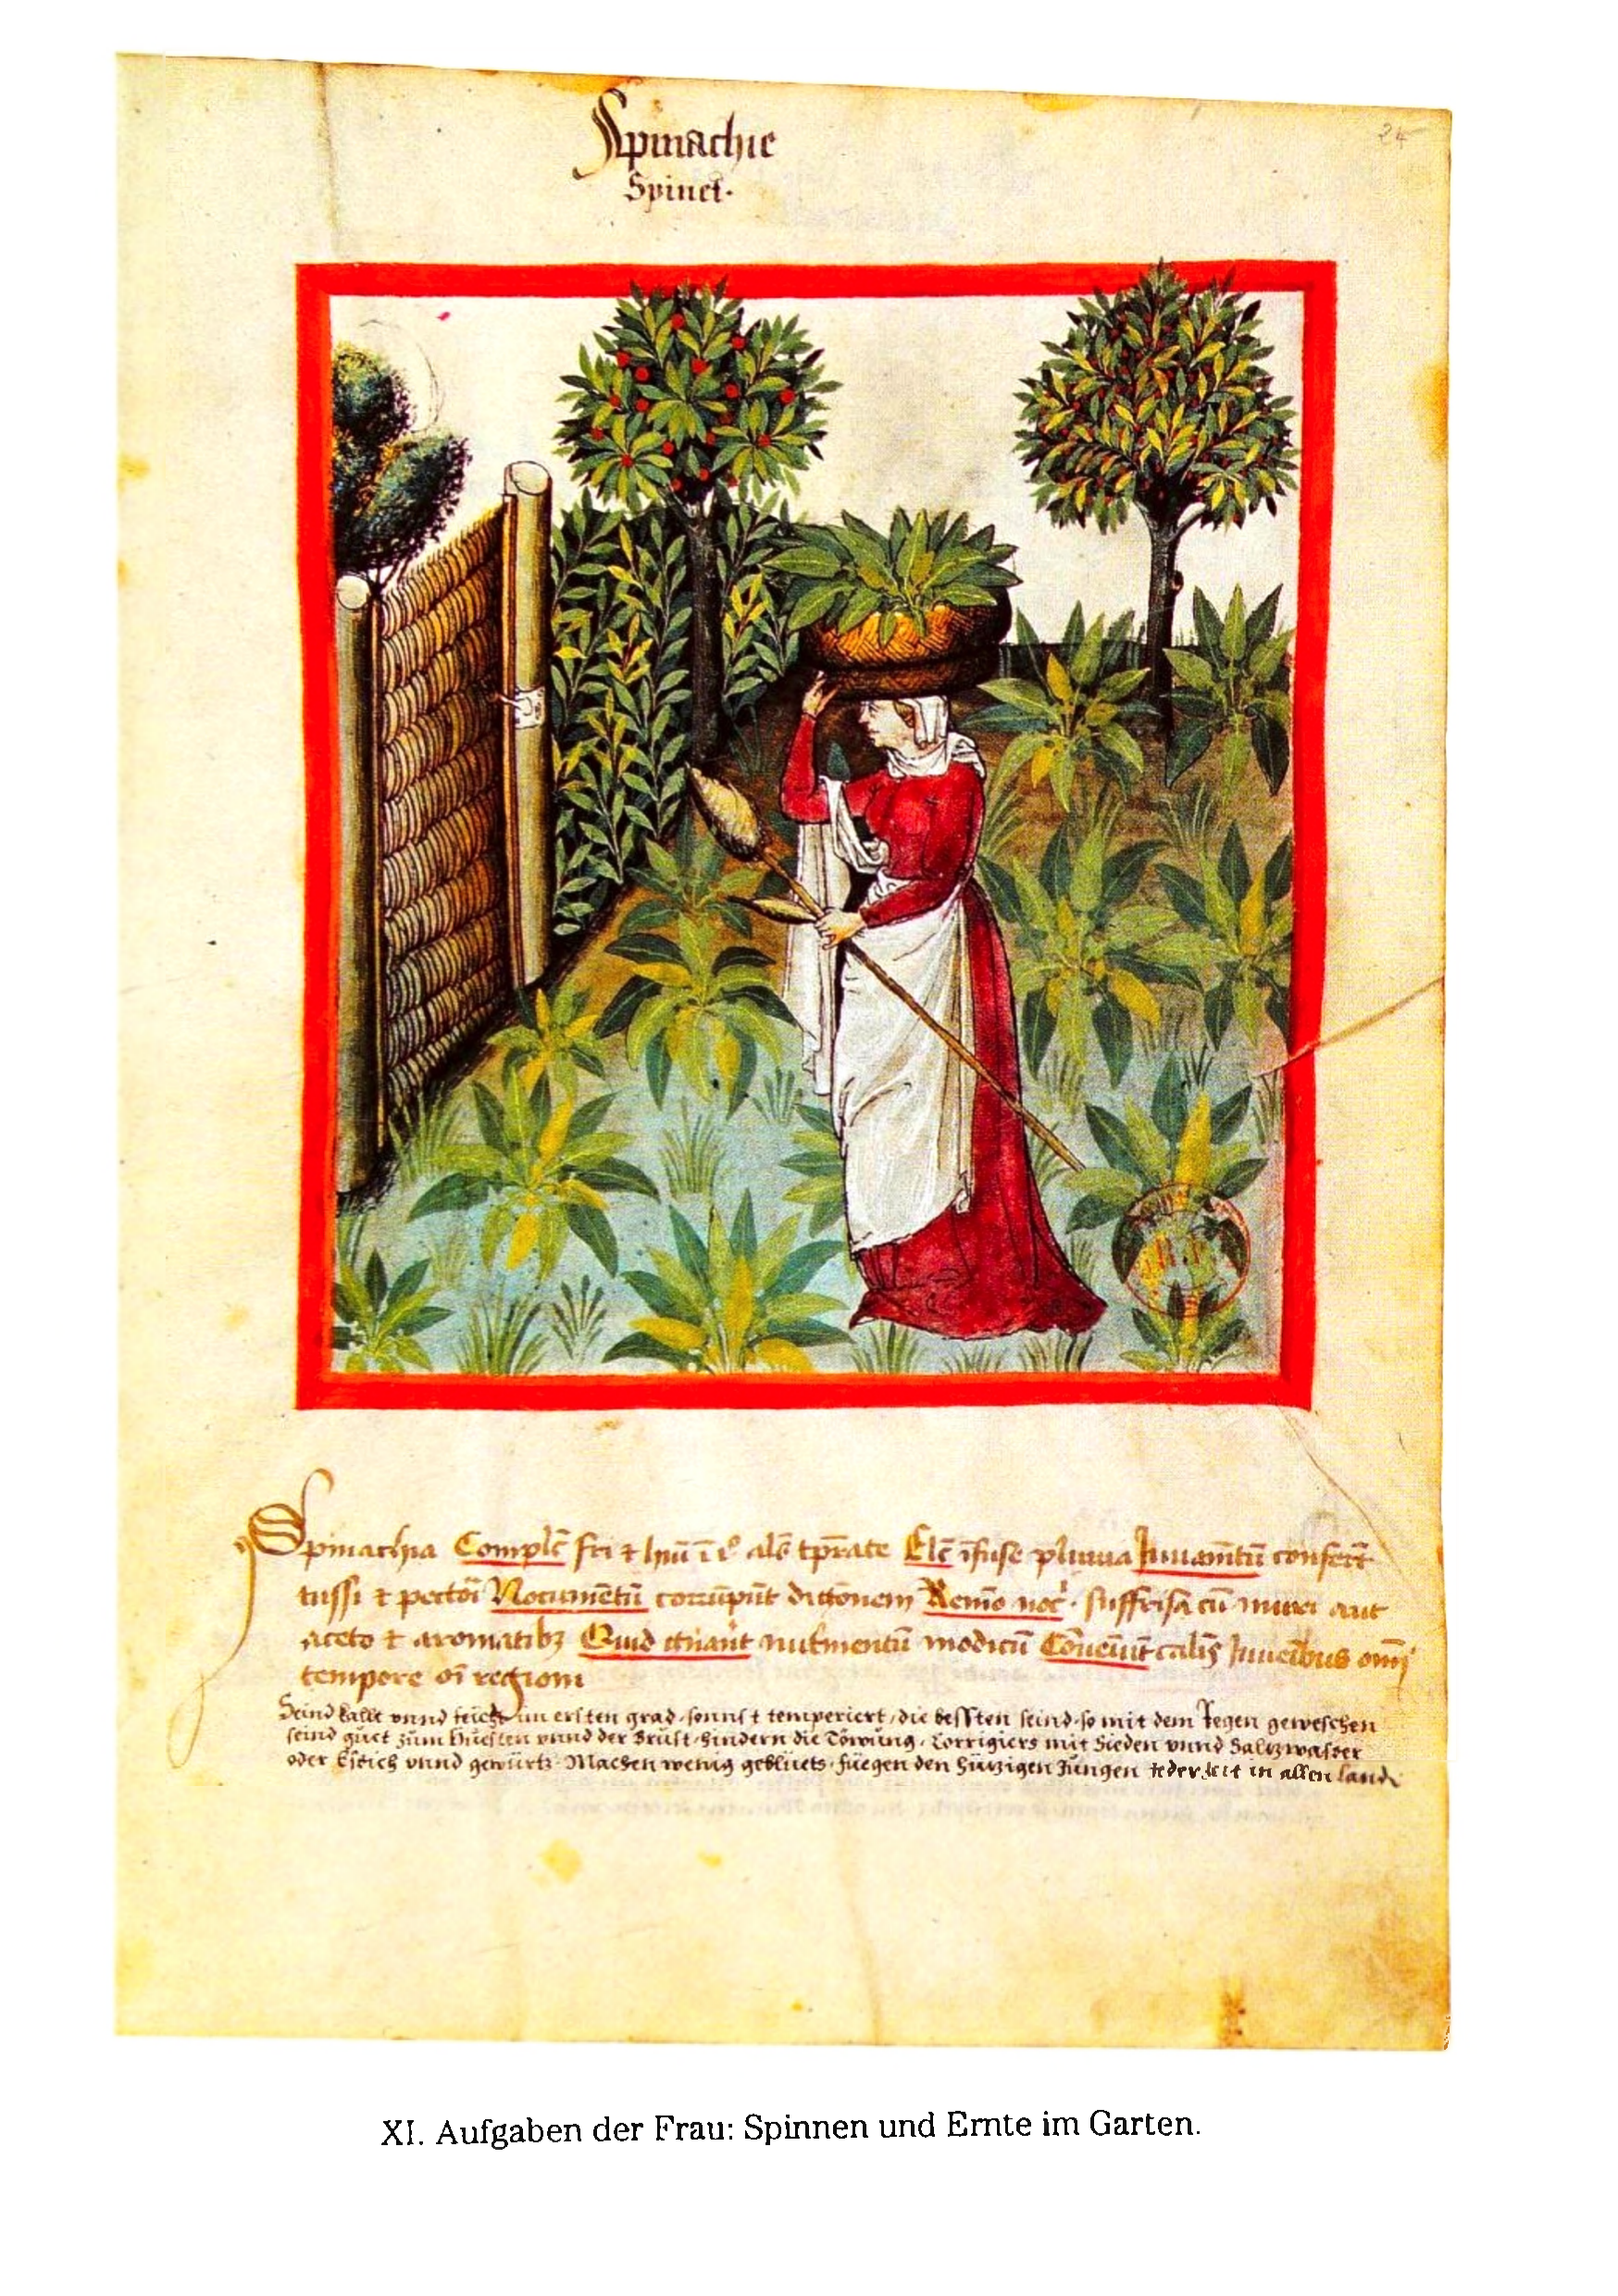 Spinachie
Spinet·
24
Spinachia Complẽ fri ⁊ hũ ĩ i° alẽ tp̃rate Elc̃ ĩfuse pluuia Iuuamẽtũ confert
tussi ⁊ pectori Nocumẽtũ corrũpũt digt̃onem Remo noĉ · suffrisa cũ muri aut
aceto ⁊ aromatibꝫ Quid gñant nut̃mentũ modicũ Cõueiũt calis Iuueĩbus omi
tempore oĩ regioni
Seind kallt vnnd feicht im ersten grad · sonnst temperiert / die bessten seind · so mit dem Regen geweschen
seind guet zum huesten vnnd der Brust · hindern die Döwung · Corrigiers mit Sieden vnnd Saltzwasser
oder Essich vnnd gewürtz · Machen wenig geblüets · fuegen den hützigen Jungen jederzeit in allen Landn
XI. Aufgaben der Frau: Spinnen und Ernte im Garten.